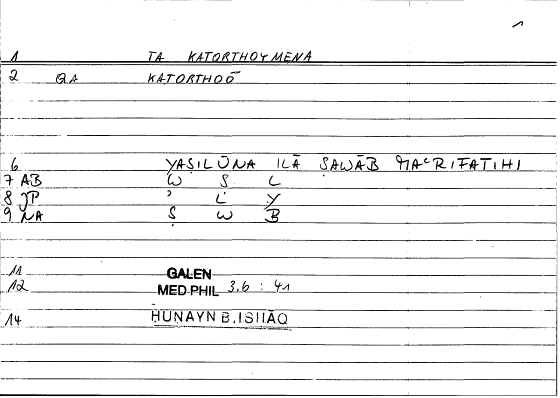 1
1 TA KATORTHOYMENA
2 QA KATORTHOŌ
6 YAṢILŪNA ILĀ ṢAWĀB MAᶜRIFATIHI
7 AB W Ṣ L
8 JP ʾ L Y
9 NA Ṣ W B
11 GALEN
12 MED PHIL 3.6 : 41
14 ḤUNAYN B.ISḤĀQ